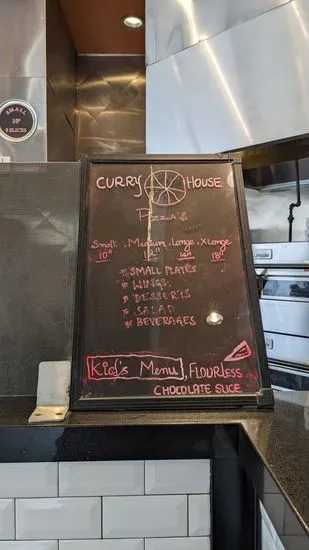 SMALL
10"
8 SLICES
CURRY HOUSE
PizzA'S
Small, Medium, Large, XLarge
10" 12" 14" 18"
* SMALL PLATES
* WINGS
* DESSERTS
* SALAD
* BEVERAGES
Kid's Menu, FLOURLESS
CHOCOLATE SLICE
Lincoln